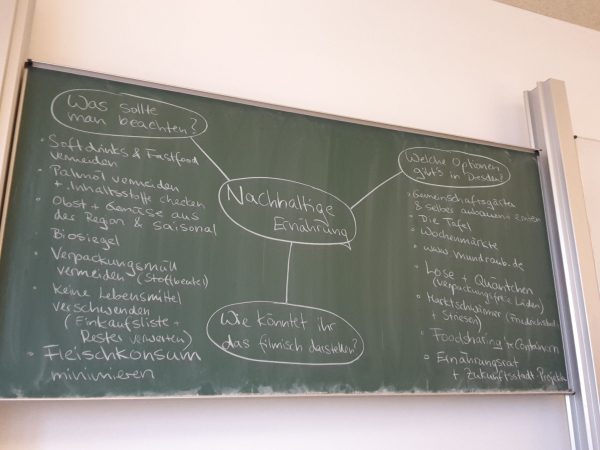 Was sollte
man beachten?
• Softdrinks & Fastfood
vermeiden
• Palmöl vermeiden
+ Inhaltsstoffe checken
• Obst + Gemüse aus
der Region & saisonal
• Biosiegel
• Verpackungsmüll
vermeiden (Stoffbeutel)
• Keine Lebensmittel
verschwenden
(Einkaufsliste +
Rester verwerten)
• Fleischkonsum
minimieren
Nachhaltige
Ernährung
Wie könntet ihr
das filmisch darstellen?
Welche Optionen
gibt's in Dresden?
• Gemeinschaftsgärten
& selber anbauen + ernten
• Die Tafel
• Wochenmärkte
• www.mundraub.de
• Lose + Quäntchen
(verpackungsfreie Läden)
• Marktschwärmer
+ Striesen)
• Foodsharing + Containern
• Ernährungsrat
+ Zukunftsstadt-Projekte